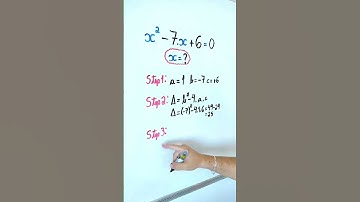 x² - 7x + 6 = 0
x = ?
Step 1: a = 1 b = -7 c = +6
Step 2: Δ = b² - 4.a.c
Δ = (-7)² - 4.1.6 = 49 - 24
= 25
Step 3: